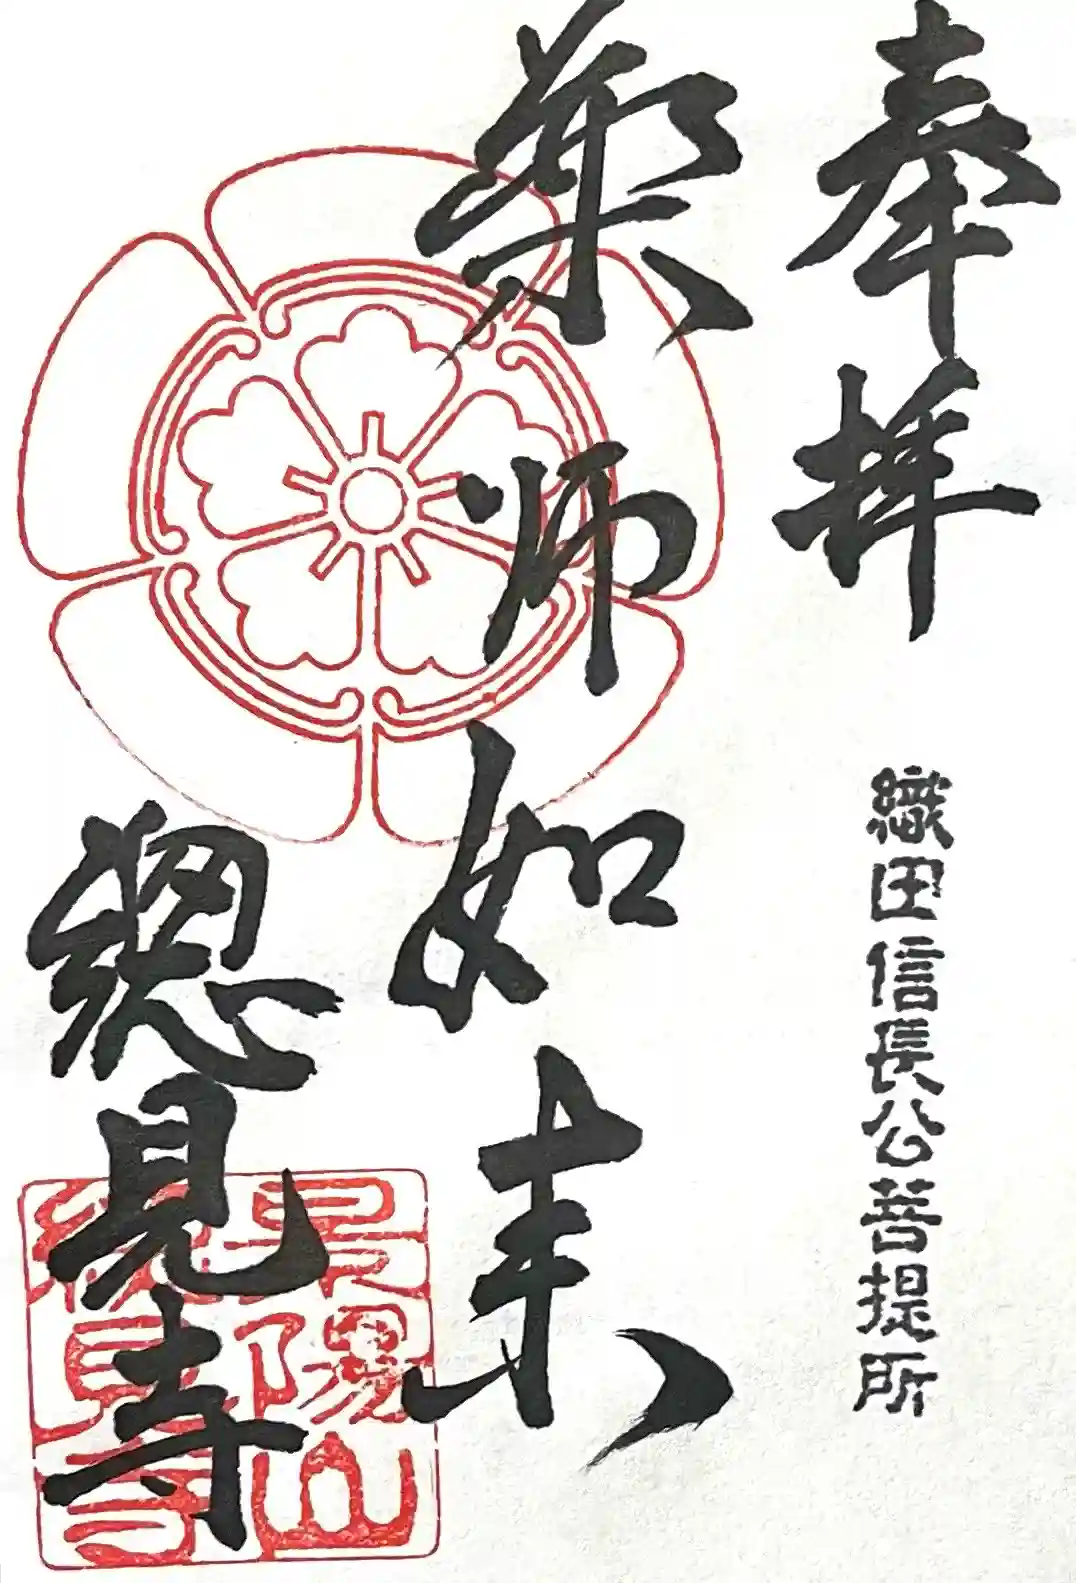 奉拝
織田信長公菩提所
薬師如来
總見寺
景陽山
總見寺